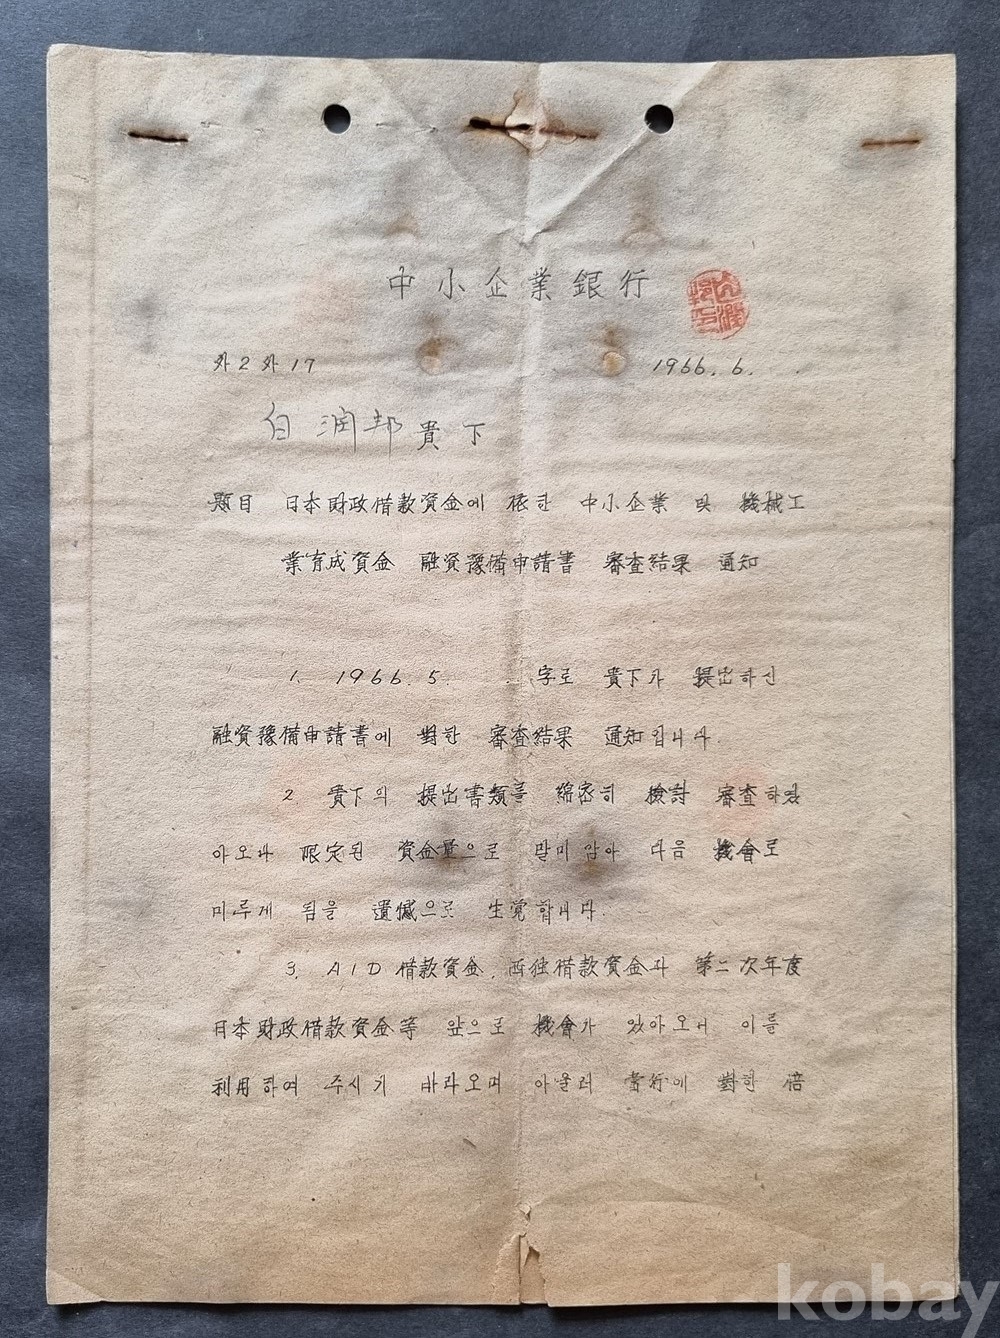 中小企業銀行
外2外17 1966. 6. .
白潤邦 貴下
題目 日本財政借款資金에 依한 中小企業 및 機械工
業育成資金 融資豫備申請書 審査結果 通知
1. 1966. 5. . 字로 貴下가 提出하신
融資豫備申請書에 對한 審査結果 通知입니다.
2 貴下의 提出書類를 綿密히 檢討 審査하였
아오나 限定된 資金量으로 말미암아 다음 機會로
미루게 됨을 遺憾으로 生覚합니다.
3. AID 借款資金, 西独借款資金과 第二次年度
日本財政借款資金等 앞으로 機會가 있아오니 이를
利用하여 주시기 바라오며 아울러 當行에 對한 倍
kobay